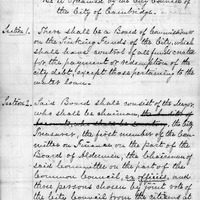 Be it ordained by the City Council of
the City of Cambridge.
Section 1. There shall be a Board of Commissioners
on the Sinking Funds of the City, which
shall have control of all funds created
for the payment or redemption of the
city debt, except those pertaining to the
water loan.
Section 2. Said Board shall consist of the Mayor,
who shall be chairman, the
the City
Treasurer, the first member of the Com-
mittee on Finance on the part of the
Board of Aldermen, the Chairman of
said Committee on the part of the
Common Council, ex officiis, and
three persons chosen by joint vote of
the City Council from the citizens at